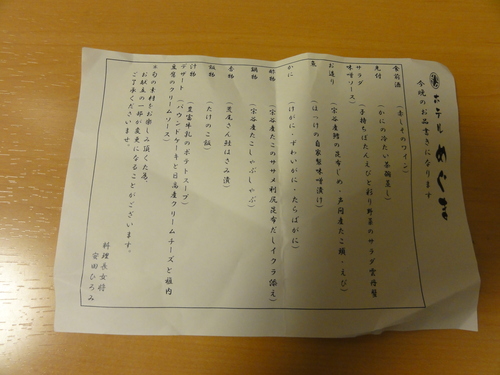 ホテル めぐま
今晩のお品書きになります
食前酒 (赤しそのワイン)
先付 (かにの冷たい茶碗蒸し)
サラダ (子持ちぼたんえびと彩り野菜のサラダ雲丹醤
味噌ソース)
お造り (宗谷産鮃の昆布じめ・戸閉産たこ頭・えび)
魚 (ほっけの自家製味噌漬け)
かに (けがに・ずわいがに・たらばがに)
酢物 (宗谷産たこのササメ利尻昆布だしイクラ添え)
鍋物 (宗谷産たこしゃぶしゃぶ)
香物 (元成さん鮭はさみ漬)
飯物 (たけのこ飯)
汁物 (豊富牛乳のポテトスープ)
デザート (パウンドケーキと日高産クリームチーズと稚内
支幌のクリームソース)
※旬の素材をお楽しみ頂くため
お献立の一部が変更になることがございます。
ご了承くださいませ。
料理長女将
安田ひろみ